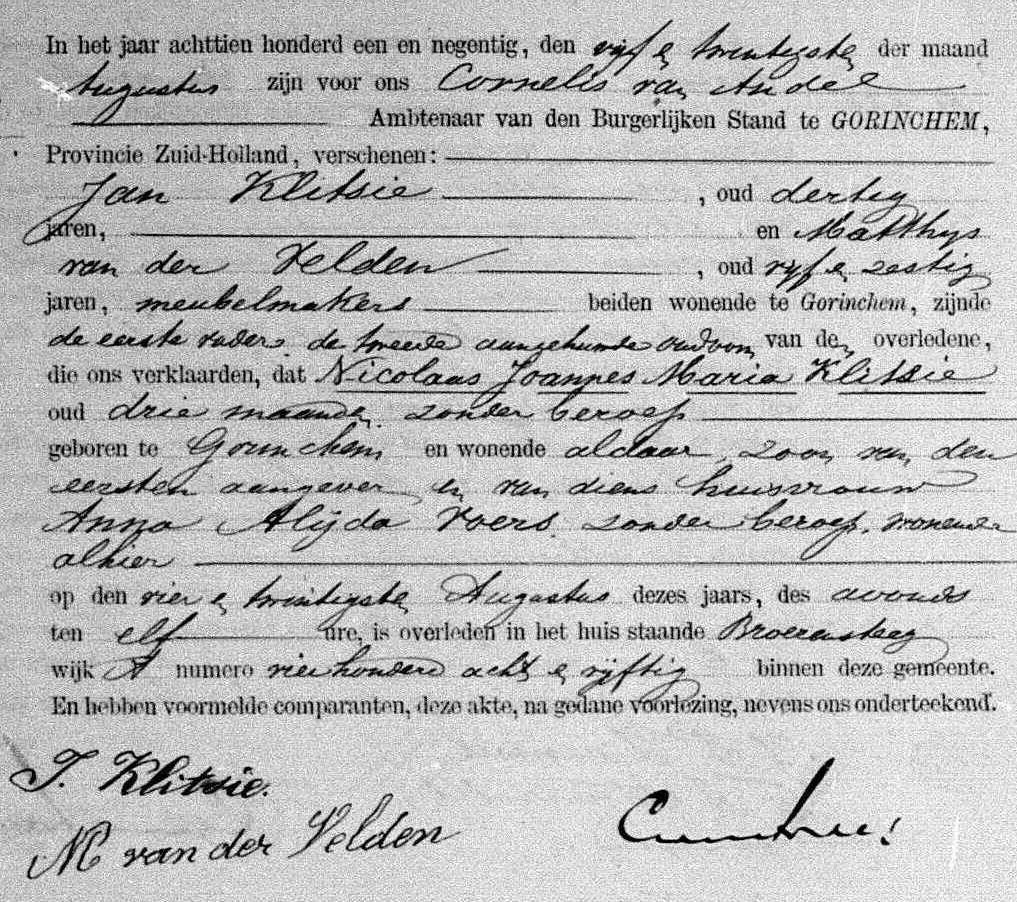 In het jaar achttien honderd een en negentig, den vijf en twintigsten der maand
Augustus zijn voor ons Cornelis van Andel
Ambtenaar van den Burgerlijken Stand te GORINCHEM,
Provincie Zuid-Holland, verschenen:
Jan Klitsie, oud dertig
jaren, en Matthys
van der Velden, oud vyf en zestig
jaren, meubelmakers beiden wonende te Gorinchem, zijnde
de eerste vader de tweede aangehuwde oudoom van den overledene,
die ons verklaarden, dat Nicolaas Joannes Maria Klitsie
oud drie maanden zonder beroep
geboren te Gorinchem en wonende aldaar, zoon van den
eersten aangever en van diens huisvrouw
Anna Alijda Voers zonder beroep, wonende
alhier
op den vier en twintigsten Augustus dezes jaars, des avonds
ten elf ure, is overleden in het huis staande Broerensteeg
wijk A numero vierhonderd acht en vyftig binnen deze gemeente.
En hebben voormelde comparanten, deze akte, na gedane voorlezing, nevens ons onderteekend.
J. Klitsie.
M van der Velden